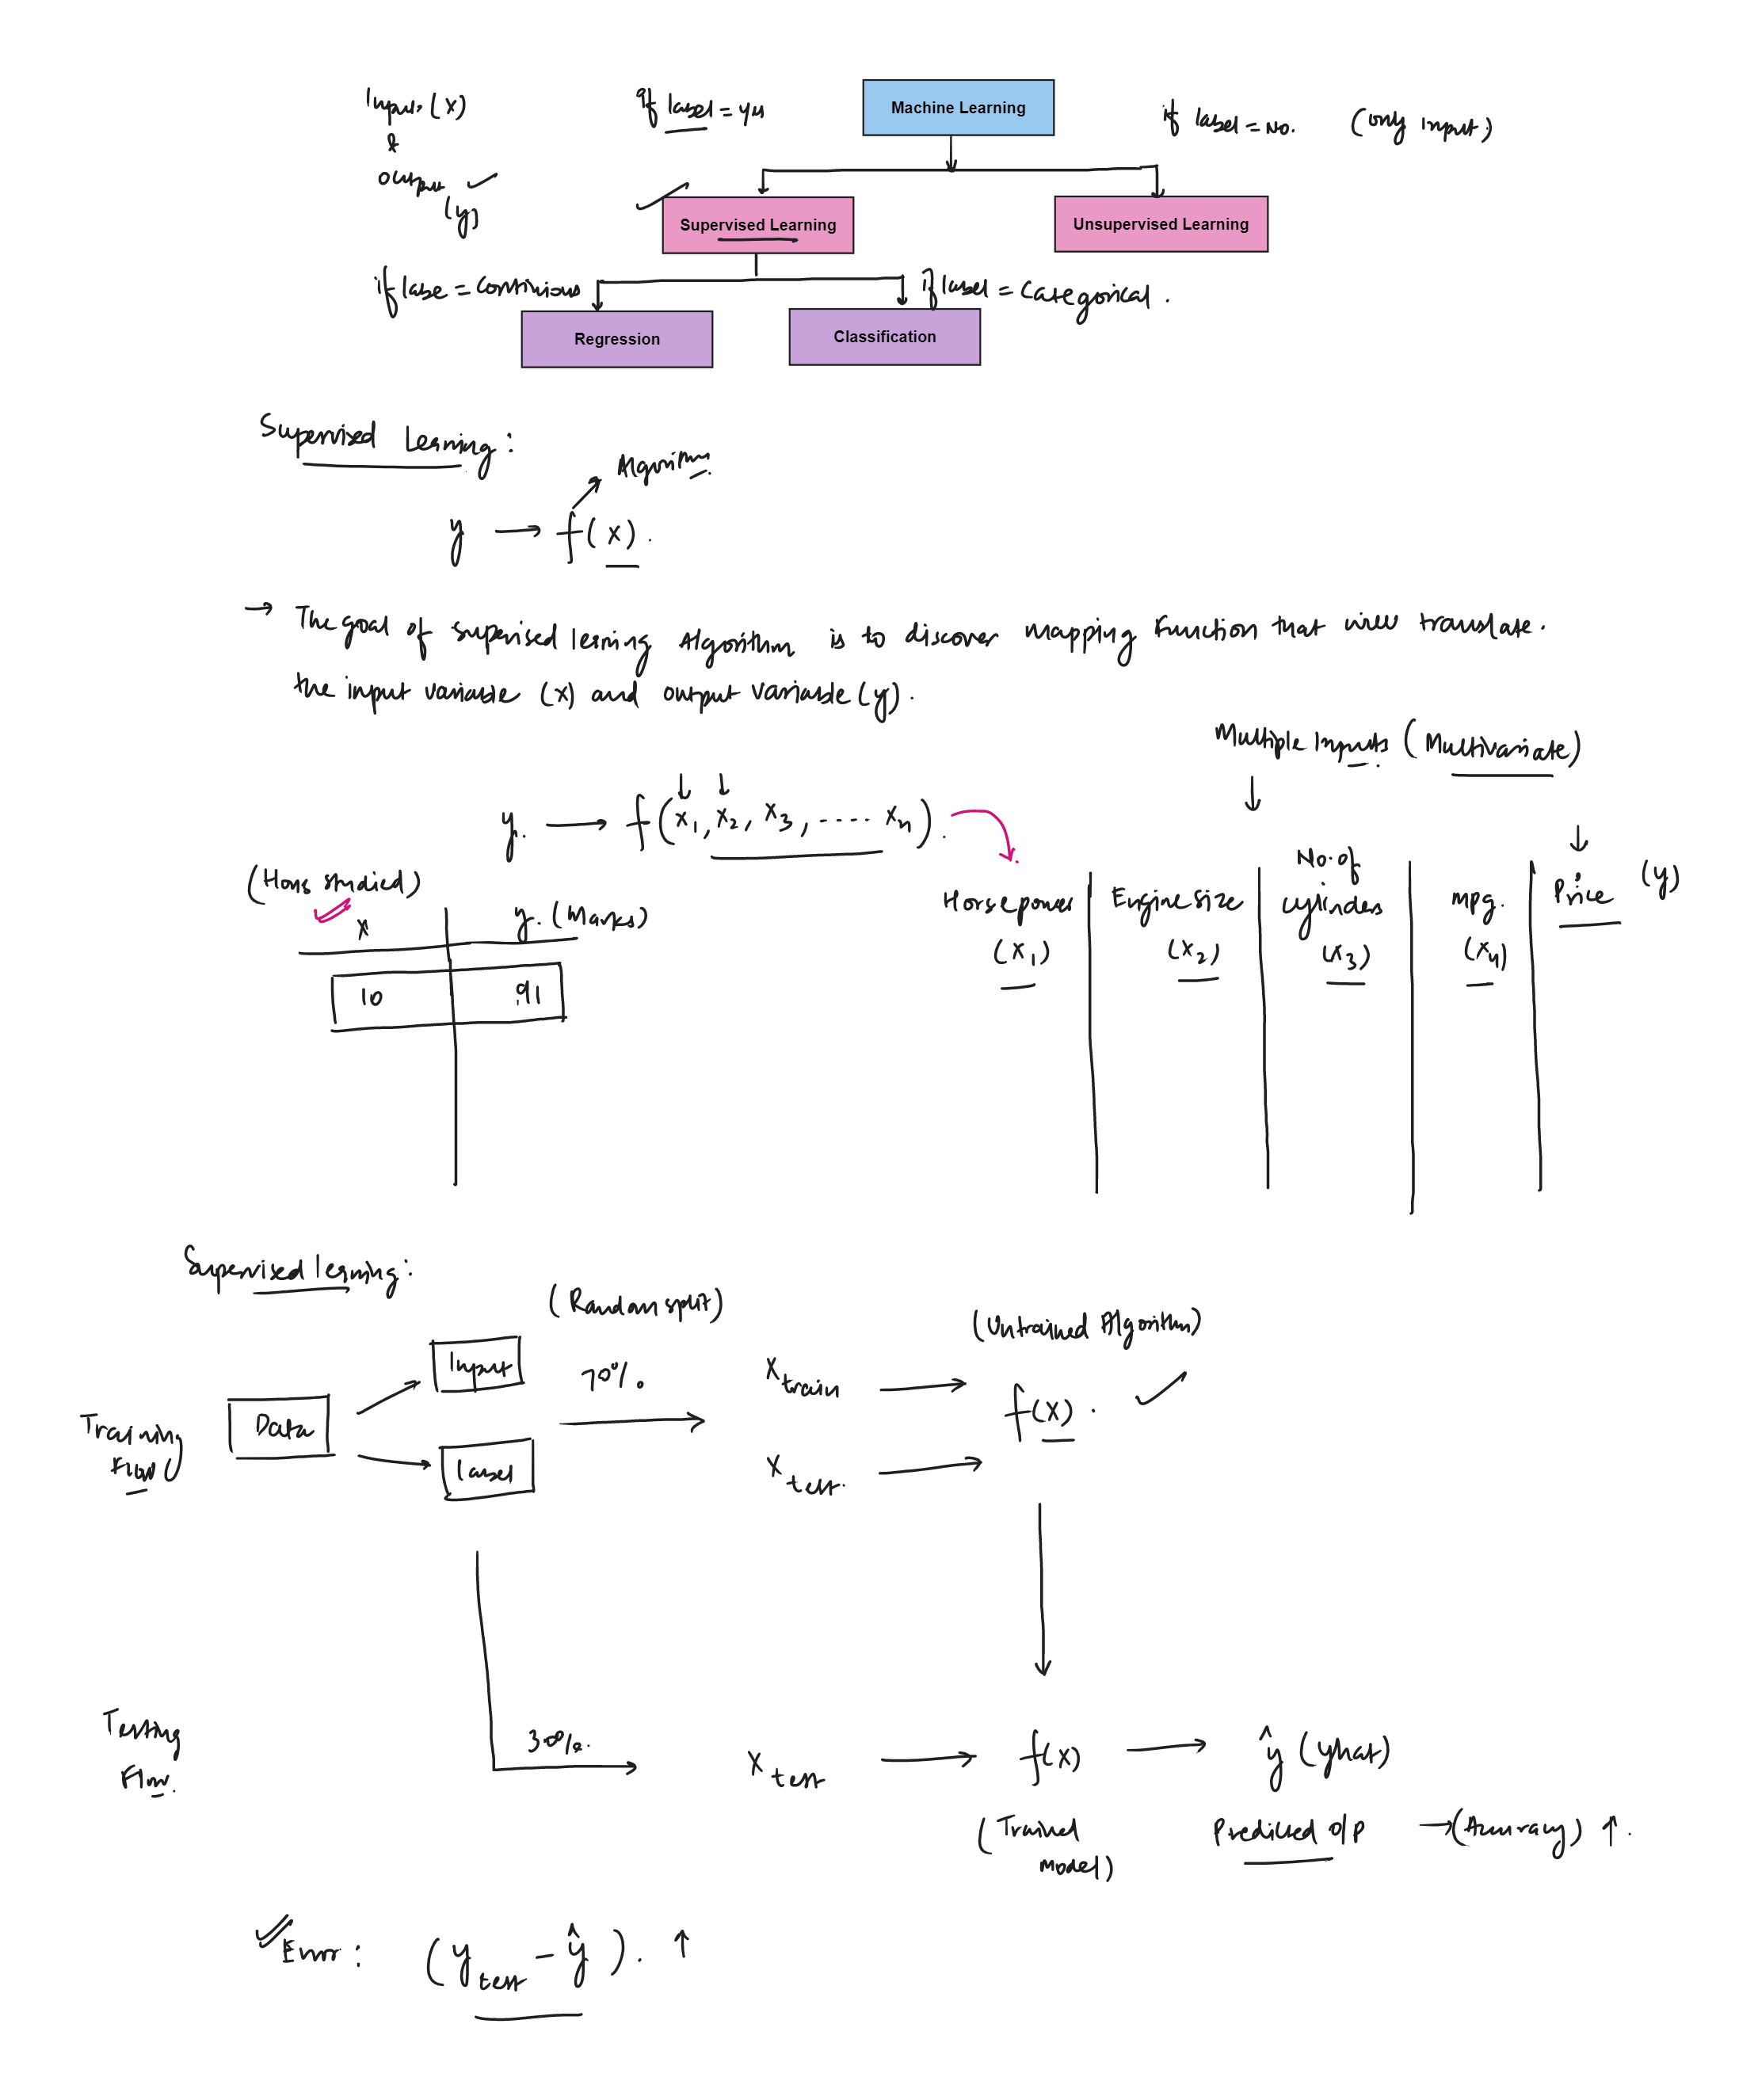 Machine Learning
Input (X)
&
output
(y)
If label = yes
if label = No. (only input)
Supervised Learning
Unsupervised Learning
if labe = Continious
if label = Categorical.
Regression
Classification
Supervised Learning:
Algorithm.
y → f(x).
→ The goal of supervised lerning Algorithm is to discover mapping function that will translate.
the input variable (x) and output variable (y).
Multiple Inputs (Multivariate)
y. → f(x1, x2, x3, ..... xn).
(Hours studied)
x
y. (Marks)
10
91
Horsepower
(x1)
Engine size
(x2)
No. of
cylinders
(x3)
mpg.
(x4)
Price
(y)
Supervised lerning:
(Random split)
(Untrained Algorithm)
Training
Flow
Data
Input
Label
70%.
X train
X test.
f(x).
Testing
Flow.
30%.
X test
f(x)
(Trained
model)
ŷ (yhat)
Predicted o/p → (Accuracy) ↑.
Error: (y test - ŷ). ↑